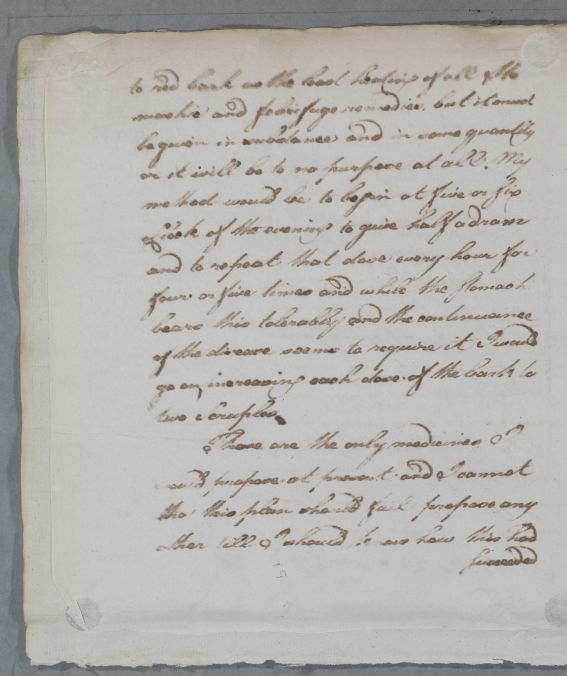 to red bark as the least heating of all the
and febrifuge remedies, but it must
be given in substance and in some quantity
or it will be to no purpose at all. My
method would be to begin at five or six
Clock of the evening to give half a dram
and to repeat that dose every hour for
four or five times and while the stomach
bears this tolerably and the continuance
of the disease seems to require it I would
go on increasing each dose of the bark to
two scruples.
These are the only medicines I
propose at present and I cannot
tho this plan should fail propose any
other till I should know how this had
succeeded